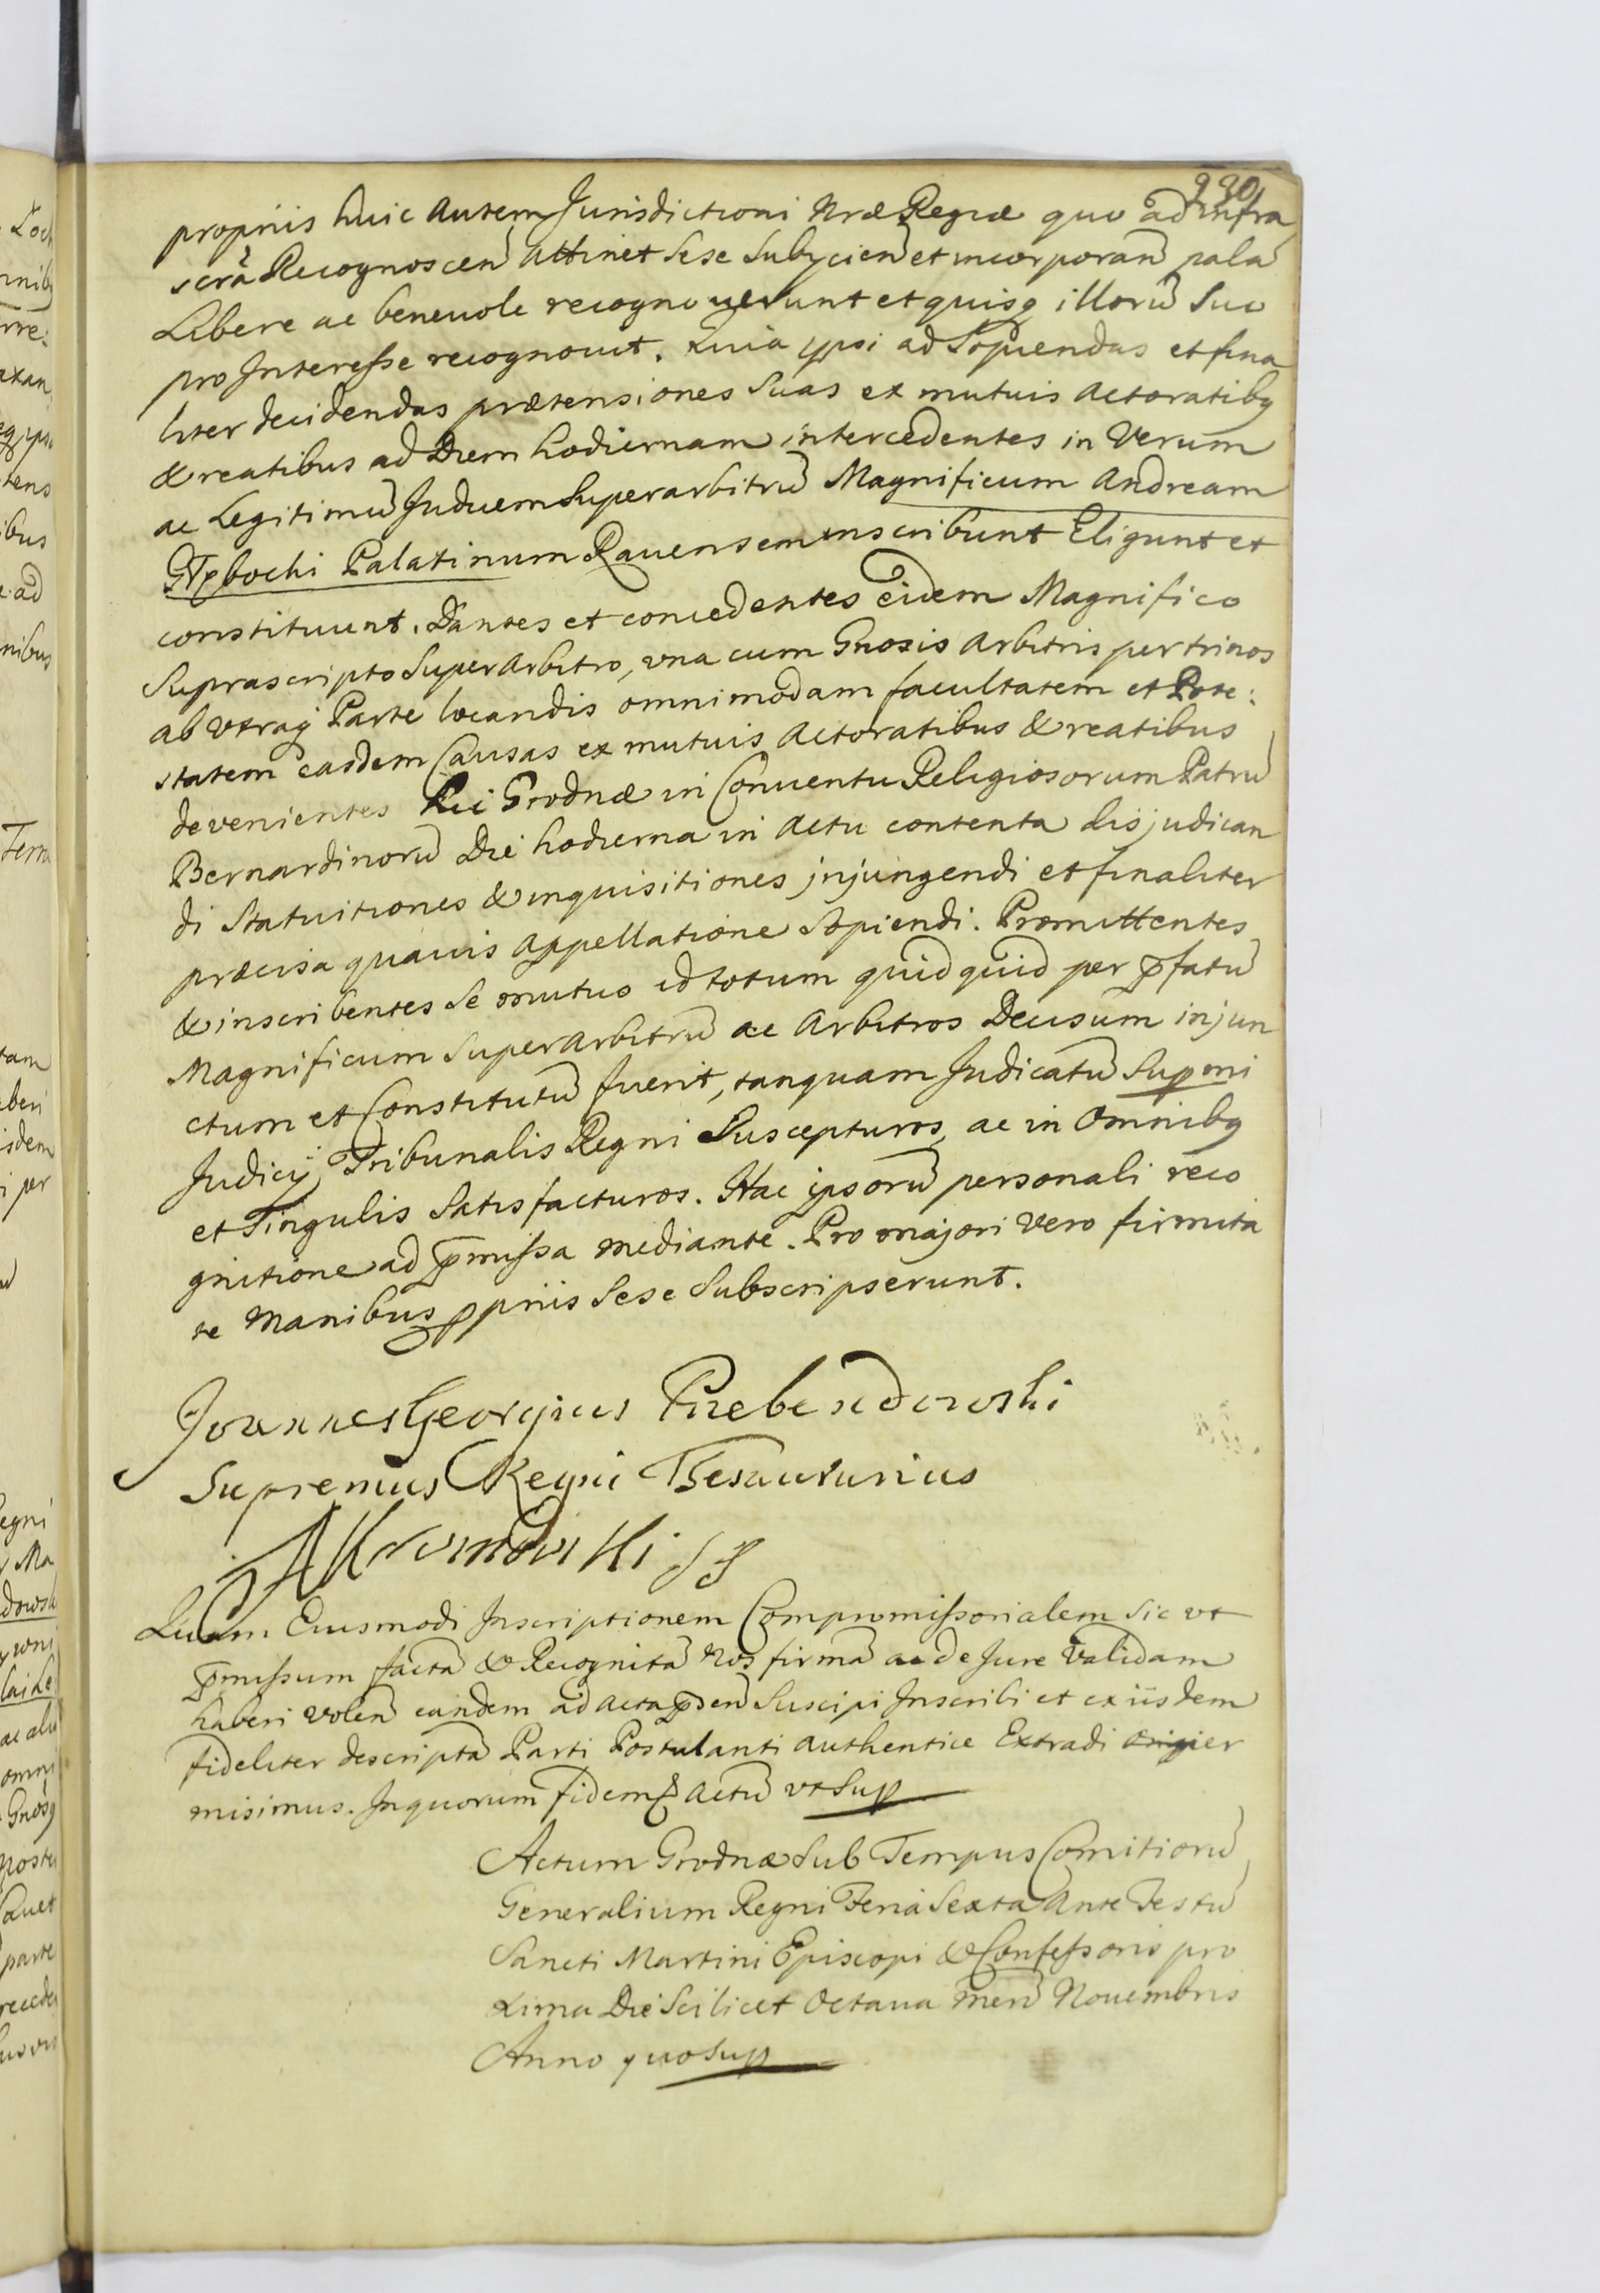 230
propriis huic autem Jurisdictioni Nræ Regiæ quo ad infra
scrã Recognoscen̄ attinet sese subycien̄ et incorporan̄ palã
Libere ac beneuole recognouerunt et quisq illorũ suo
pro Interesse recognouit. Quia ypsi ad Sopiendas et fina
liter decidendas prætensiones suas ex mutuis actoratibq
& reatibus ad Diem hodiernam intercedentes in Verum
ac Legitimũ Judicem Superarbitrũ Magnificum Andream
Palatinum Rauensem inscribunt Eligunt et
constituunt. Dantes et concedentes eidem Magnifico
Suprascripto Superarbitro, vna cum Gnosis Arbitris per trinos
ab vtraq Parte locandis omnimodam facultatem et Pote:
statem easdem Causas ex mutuis actoratibus & reatibus
devenientes hic Grodnæ in Conuentu Religiosorum Patrũ
Bernardinorũ Die hodierna in actu contenta disjudican
di statuitiones & inquisitiones injungendi et finaliter
præcisa quauis appellatione sopiendi. Promittentes
& inscribentes se mutuo id totum quidquid per p̄fatũ
Magnificum Superarbitrũ ac Arbitros Decisum injun
ctum et Constitutũ fuerit, tanquam Judicatũ Supmi
Judicij Tribunalis Regni suscepturos, ac in Omnibq
et Singulis satisfacturos. Hac ipsorũ personali reco
gnitione ad p̄missa mediante. Pro majori vero firmita
te Manibus ppriis sese subscripserunt.
Joannes Georgius Przebendowski
Supremus Regni Thesaurarius
Quam Eiusmodi Inscriptionem Compromissorialem sic vt
p̄missum factã & Recognitã Nos firmã ac de Jure Validam
haberi volen̄ eandem ad acta p̄sen̄ suscipi Inscribi et ex iisdem
fideliter descriptã Parti Postulanti authentice Extradi per
misimus. In quorum fidem Actũ vt Sup
Actum Grodnæ sub Tempus Comitiorũ
Generalium Regni Feria Sexta ante Festũ
Sancti Martini Episcopi & Confessoris pro
xima Die Scilicet Octaua men̄ Nouembris
Anno quo Sup